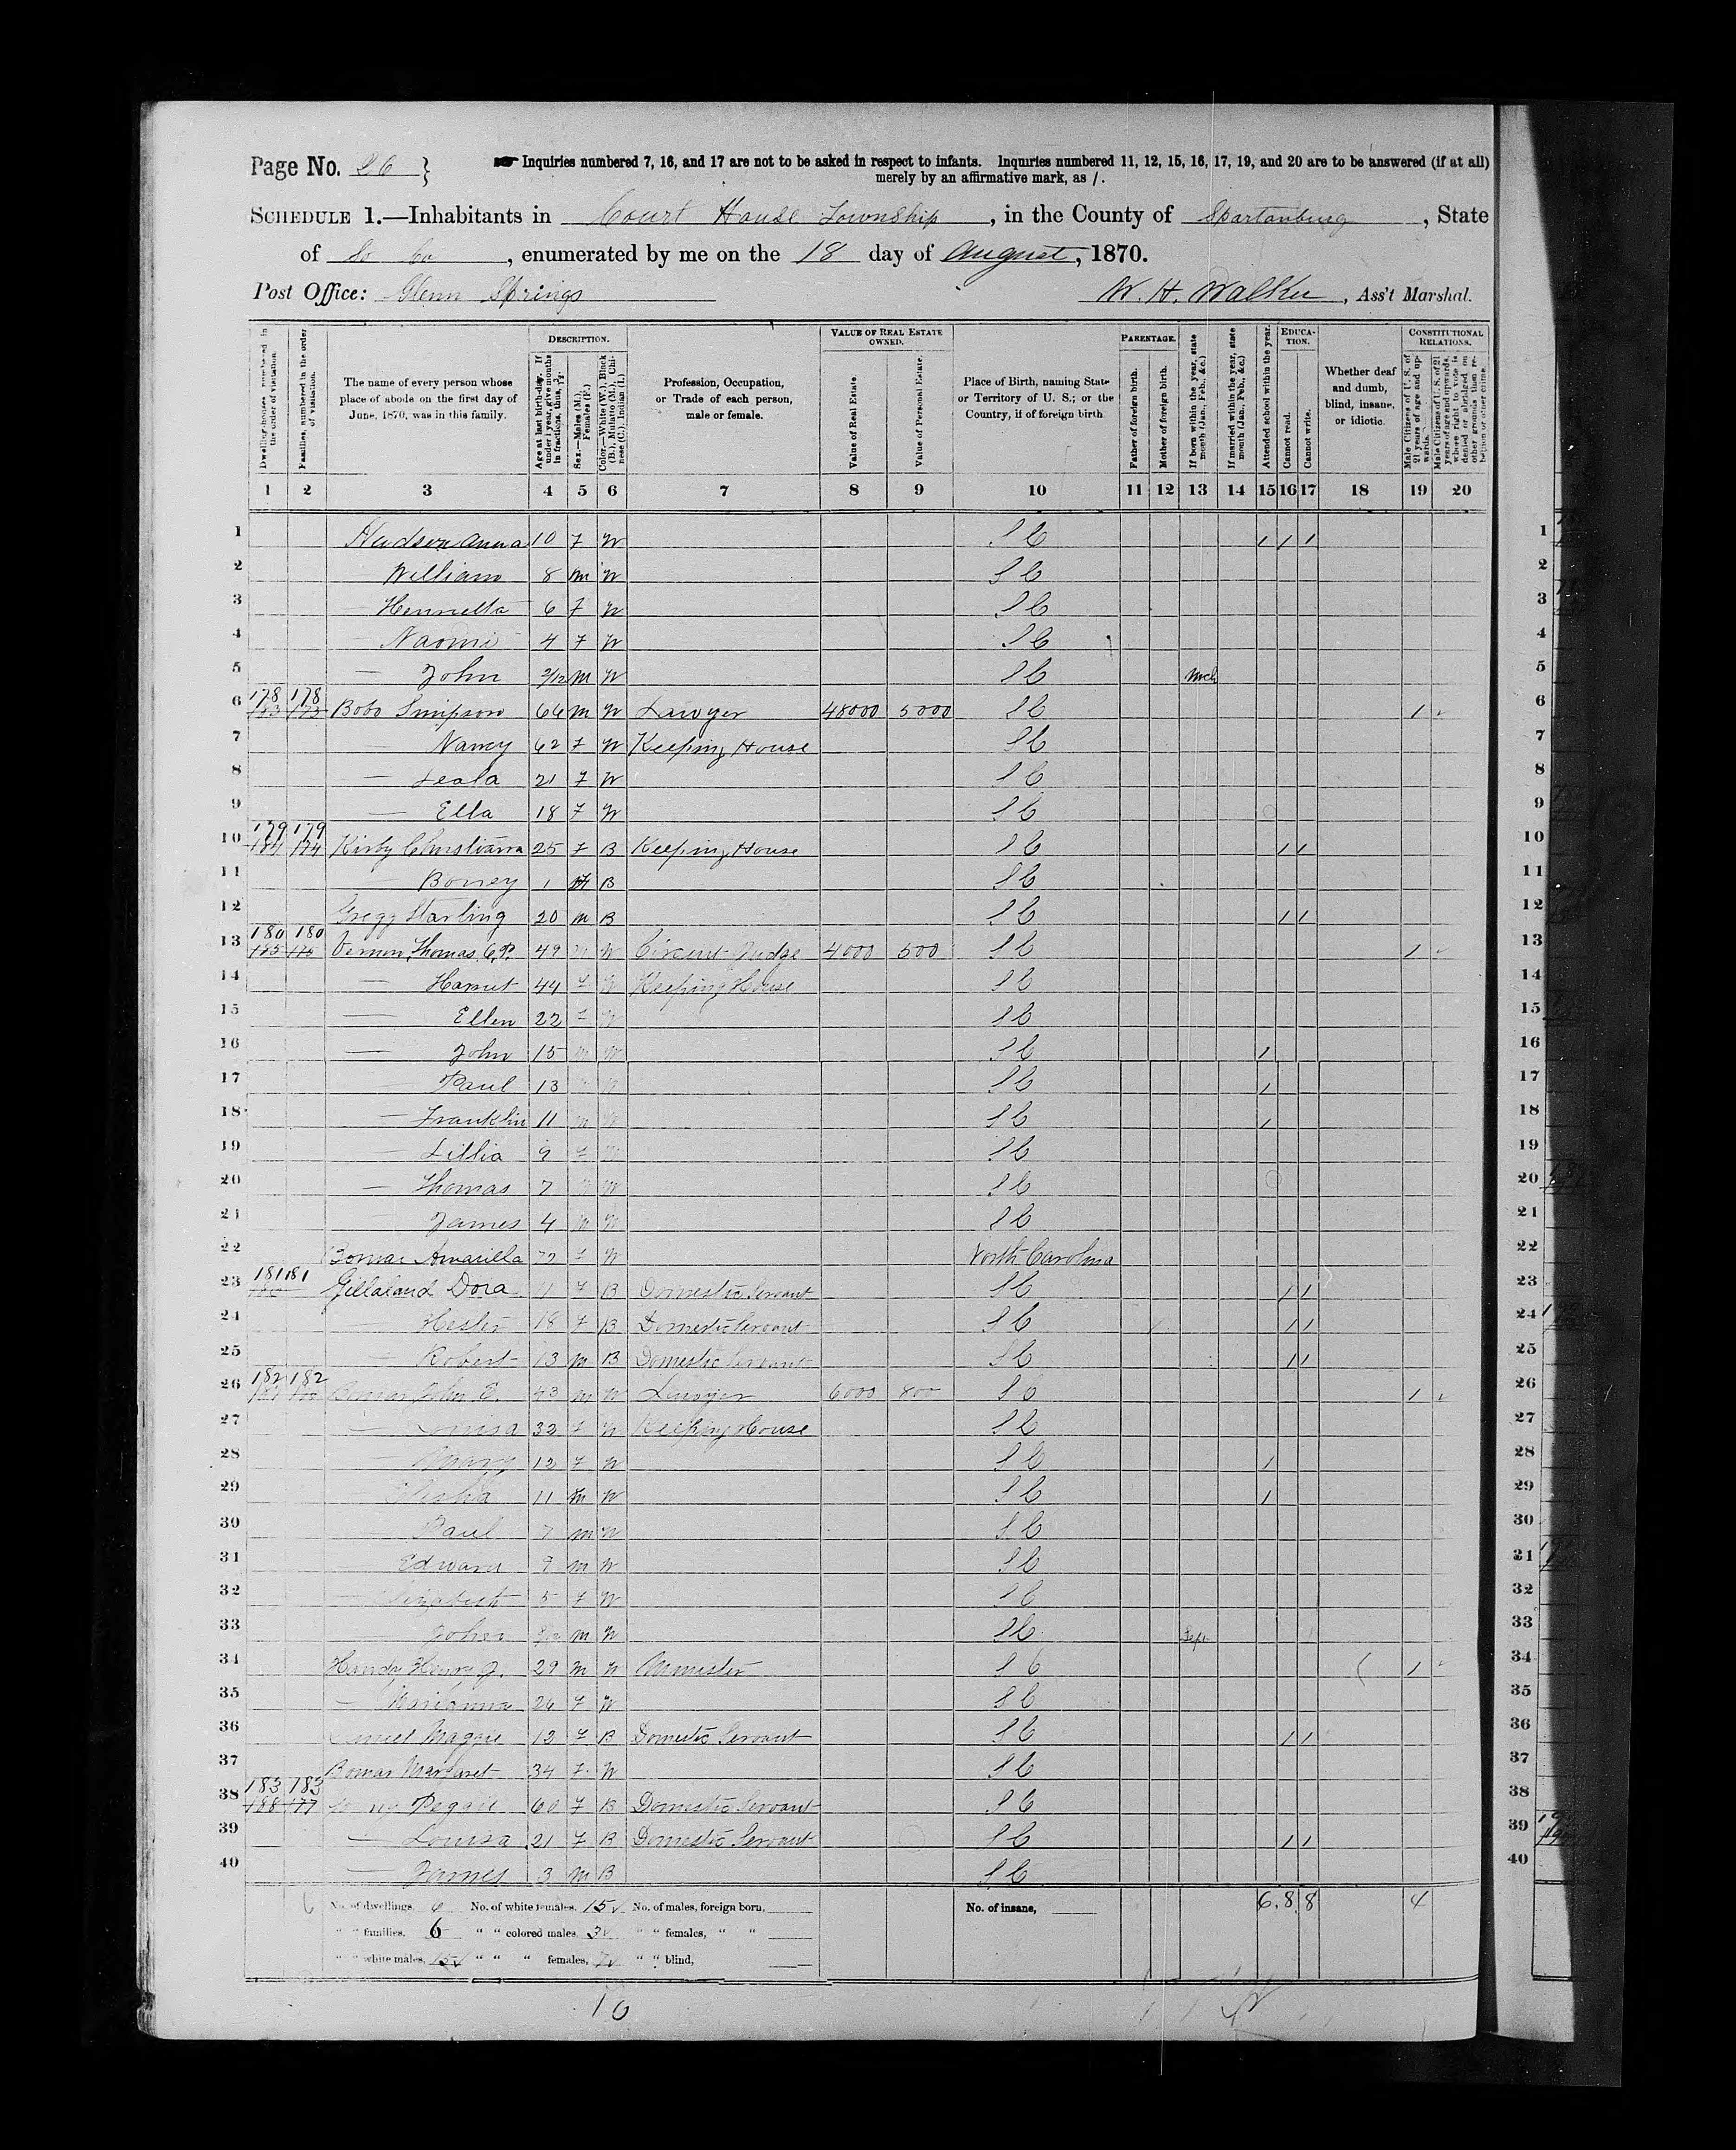 Page No. 26 }
Inquiries numbered 7, 16, and 17 are not to be asked in respect to infants. Inquiries numbered 11, 12, 15, 16, 17, 19, and 20 are to be answered (if at all)
merely by an affirmative mark, as /.
SCHEDULE 1.—Inhabitants in Court House Township, in the County of Spartanburg, State
of So Ca, enumerated by me on the 18 day of August, 1870.
Post Office: Glenn Springs W. H. Walker, Ass't Marshal.
Dwelling-houses, numbered in the order of visitation.
Families, numbered in the order of visitation.
The name of every person whose place of abode on the first day of June, 1870, was in this family.
DESCRIPTION.
Age at last birth-day. If under 1 year, give months in fractions, thus, 3/12.
Sex.—Males (M.), Females (F.)
Color.—White (W.), Black (B.), Mulatto (M.), Chinese (C.), Indian (I.)
Profession, Occupation, or Trade of each person, male or female.
VALUE OF REAL ESTATE OWNED.
Value of Real Estate.
Value of Personal Estate.
Place of Birth, naming State or Territory of U. S.; or the Country, if of foreign birth.
PARENTAGE.
Father of foreign birth.
Mother of foreign birth.
If born within the year, state month (Jan., Feb., &c.)
If married within the year, state month (Jan., Feb., &c.)
Attended school within the year.
EDUCATION.
Cannot read.
Cannot write.
Whether deaf and dumb, blind, insane, or idiotic.
CONSTITUTIONAL RELATIONS.
Male Citizens of U. S. of 21 years of age and upwards.
Male Citizens of U. S. of 21 years of age and upwards, whose right to vote is denied or abridged on other grounds than rebellion or other crime.
1 2 3 4 5 6 7 8 9 10 11 12 13 14 15 16 17 18 19 20
1 Hudson Anna 10 F W S C / / / 1
2 William 8 M W S C 2
3 Henrietta 6 F W S C 3
4 Naomi 4 F W S C 4
5 — John 3/12 M W S C Mch 5
6 178 178 Bobo Simpson 64 M W Lawyer 48000 5000 S C / 6
7 — Nancy 62 F W Keeping House S C 7
8 — Leala 21 F W S C 8
9 — Ella 18 F W S C 9
10 179 179 Kirby Christianna 25 F B Keeping House S C / / 10
11 — Boney 1 B S C 11
12 Gregg Starling 20 M B S C / / 12
13 180 180 Vernon, Thomas O. P. 49 M W Circuit Judge 4000 500 S C / 13
14 — Harriet 44 F W Keeping House S C 14
15 — Ellen 22 F W S C 15
16 — John 15 M W S C / 16
17 — Paul 13 S C / 17
18 — Franklin 11 M W S C / 18
19 — Lillia 9 F W S C 19
20 — Thomas 7 M W S C 20
21 — James 4 M W S C 21
22 Bomar Amarilla 72 F W North Carolina 22
23 181 181 Gillaland Dora 11 F B Domestic Servant S C / / 23
24 — Hester 18 F B Domestic Servant S C / / 24
25 — Robert 13 M B Domestic Servant S C / / 25
26 182 182 Bomar John E. 43 M W Lawyer 6000 800 S C / 26
27 — Louisa 32 F W Keeping House S C 27
28 — Mary 12 F W S C / 28
29 Elisha 11 M W S C / 29
30 Paul 7 M W S C 30
31 — Edward 9 M W S C 31
32 Elizabeth 5 F W S C 32
33 John M W S C Sep. 33
34 Handy Henry J. 29 M W Minister S C / 34
35 — Marianna 26 F W S C 35
36 Maggie 12 F B Domestic Servant S C / / 36
37 Bomar Margaret 34 F W S C 37
38 183 183 Peggie 60 F B Domestic Servant S C 38
39 — Louisa 21 F B Domestic Servant S C / / 39
40 — James 3 M B S C 40
No. of dwellings, 6 No. of white females, 15 No. of males, foreign born, No. of insane, 6 8 8 4
" " families, 6 " " colored males, 3 " " females, " "
" " white males, 15 " " " females, 7 " " blind,